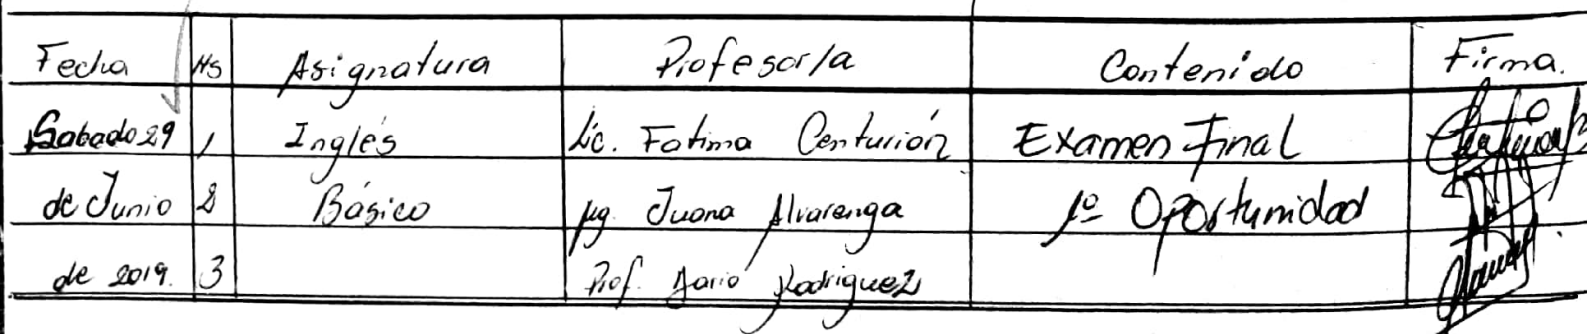 Fecha Hs Asignatura Profesor/a Contenido Firma.
Sabado 29 1 Inglés Lic. Fatima Centurión Examen Final
de Junio 2 Básico Mg. Juana Alvarenga 1º Oportunidad
de 2019. 3 Prof. Dario Rodriguez